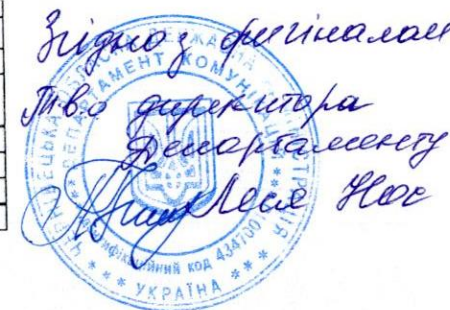 Згідно з оригіналом
Т.в.о директора
Департаменту
Леся Нос
ДЕПАРТАМЕНТ КОМУНІ
ДЕРЖАВНА
код
* * * УКРАЇНА * * *